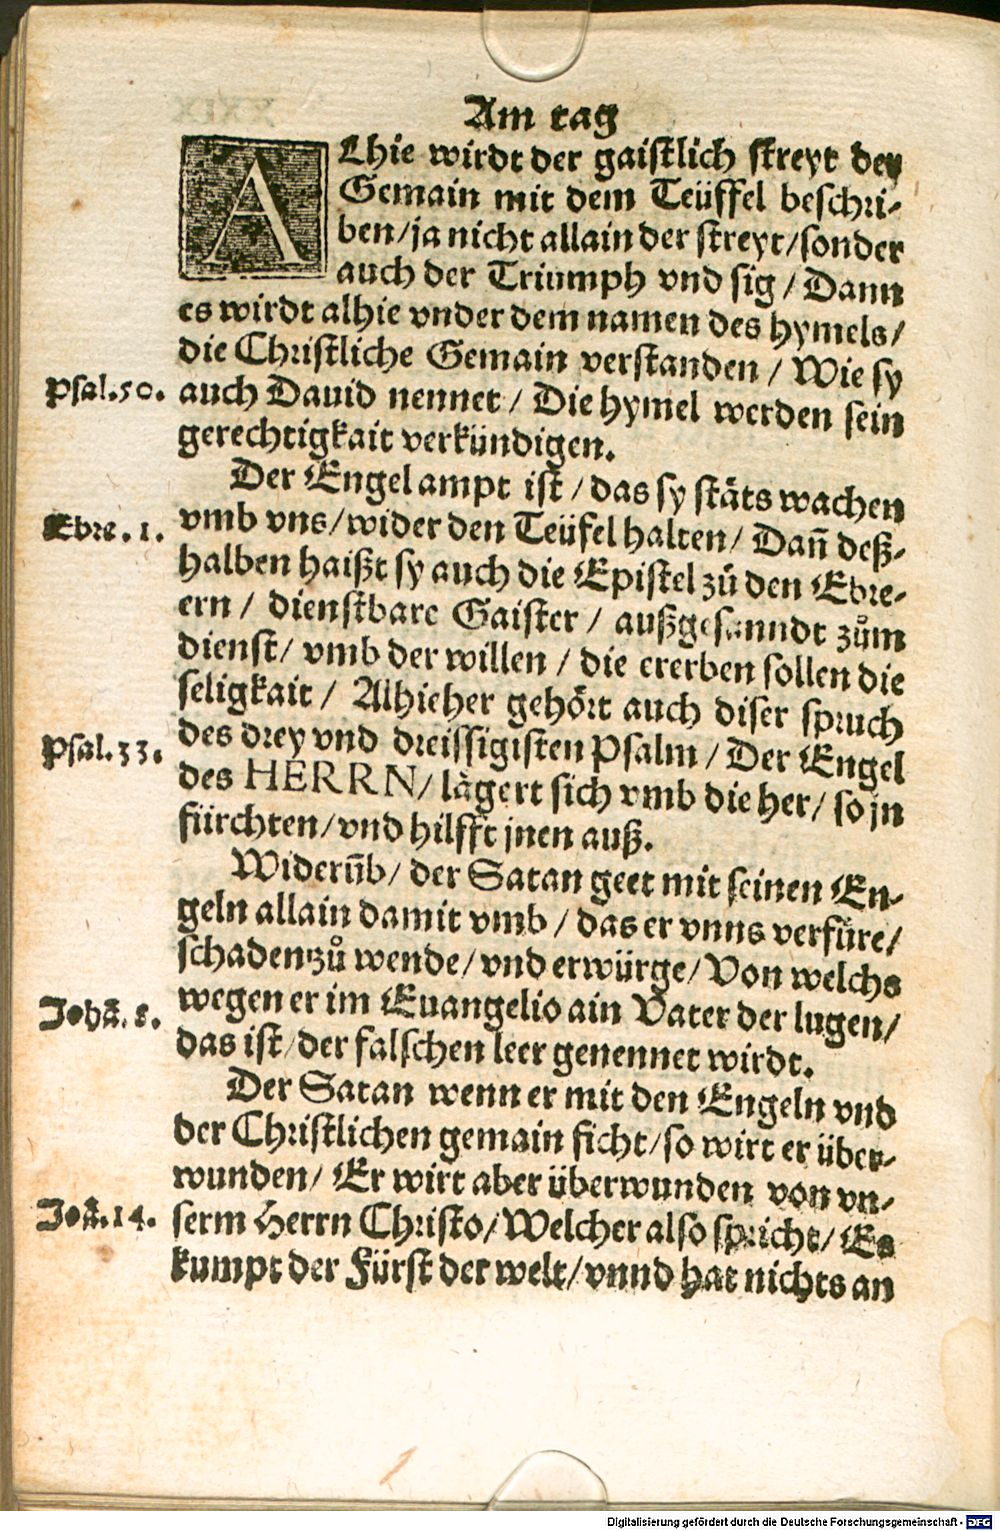 Am tag
ALhie wirdt der gaistlich streyt der
Gemain mit dem Teüffel beschri-
ben/ja nicht allain der streyt/sonder
auch der Triumph vnd sig/Dann
es wirdt alhie vnder dem namen des hymels/
die Christliche Gemain verstanden/Wie sy
Psal.50. auch Dauid nennet/Die hymel werden sein
gerechtigkait verkündigen.
Der Engel ampt ist/das sy stäts wachen
Ebre.1. vmb vns/wider den Teüfel halten/Dañ deß-
halben haißt sy auch die Epistel zů den Ebre-
ern/dienstbare Gaister/außgesanndt zům
dienst/vmb der willen/die ererben sollen die
seligkait/Alhieher gehört auch diser spruch
Psal.33. des drey vnd dreissigisten Psalm/Der Engel
des HERRN/lägert sich vmb die her/so jn
fürchten/vnd hilfft jnen auß.
Widerũb/der Satan geet mit seinen En-
geln allain damit vmb/das er vnns verfüre/
schaden zů wende/vnd erwürge/Von welchs
Johã.8. wegen er im Euangelio ain Vater der lugen/
das ist/der falschen leer genennet wirdt.
Der Satan wenn er mit den Engeln vnd
der Christlichen gemain ficht/so wirt er über-
wunden/Er wirt aber überwunden von vn-
Joã.14. serm Herrn Christo/Welcher also spricht/Es
kumpt der Fürst der welt/vnnd hat nichts an
Digitalisierung gefördert durch die Deutsche Forschungsgemeinschaft - DFG